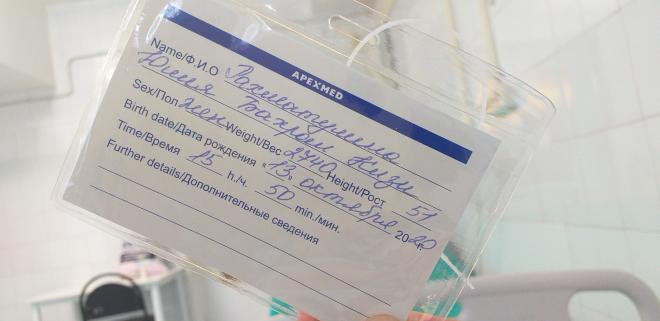 APEXMED
Name/Ф.И.О Рахматуллина
Юлия Бахром Кизи
Sex/Пол жен Weight/Вес 2740 Height/Рост 51
Birth date/Дата рождения « 13 » октября 2020 г.
Time/Время 15 h./ч. 50 min./мин.
Further details/Дополнительные сведения